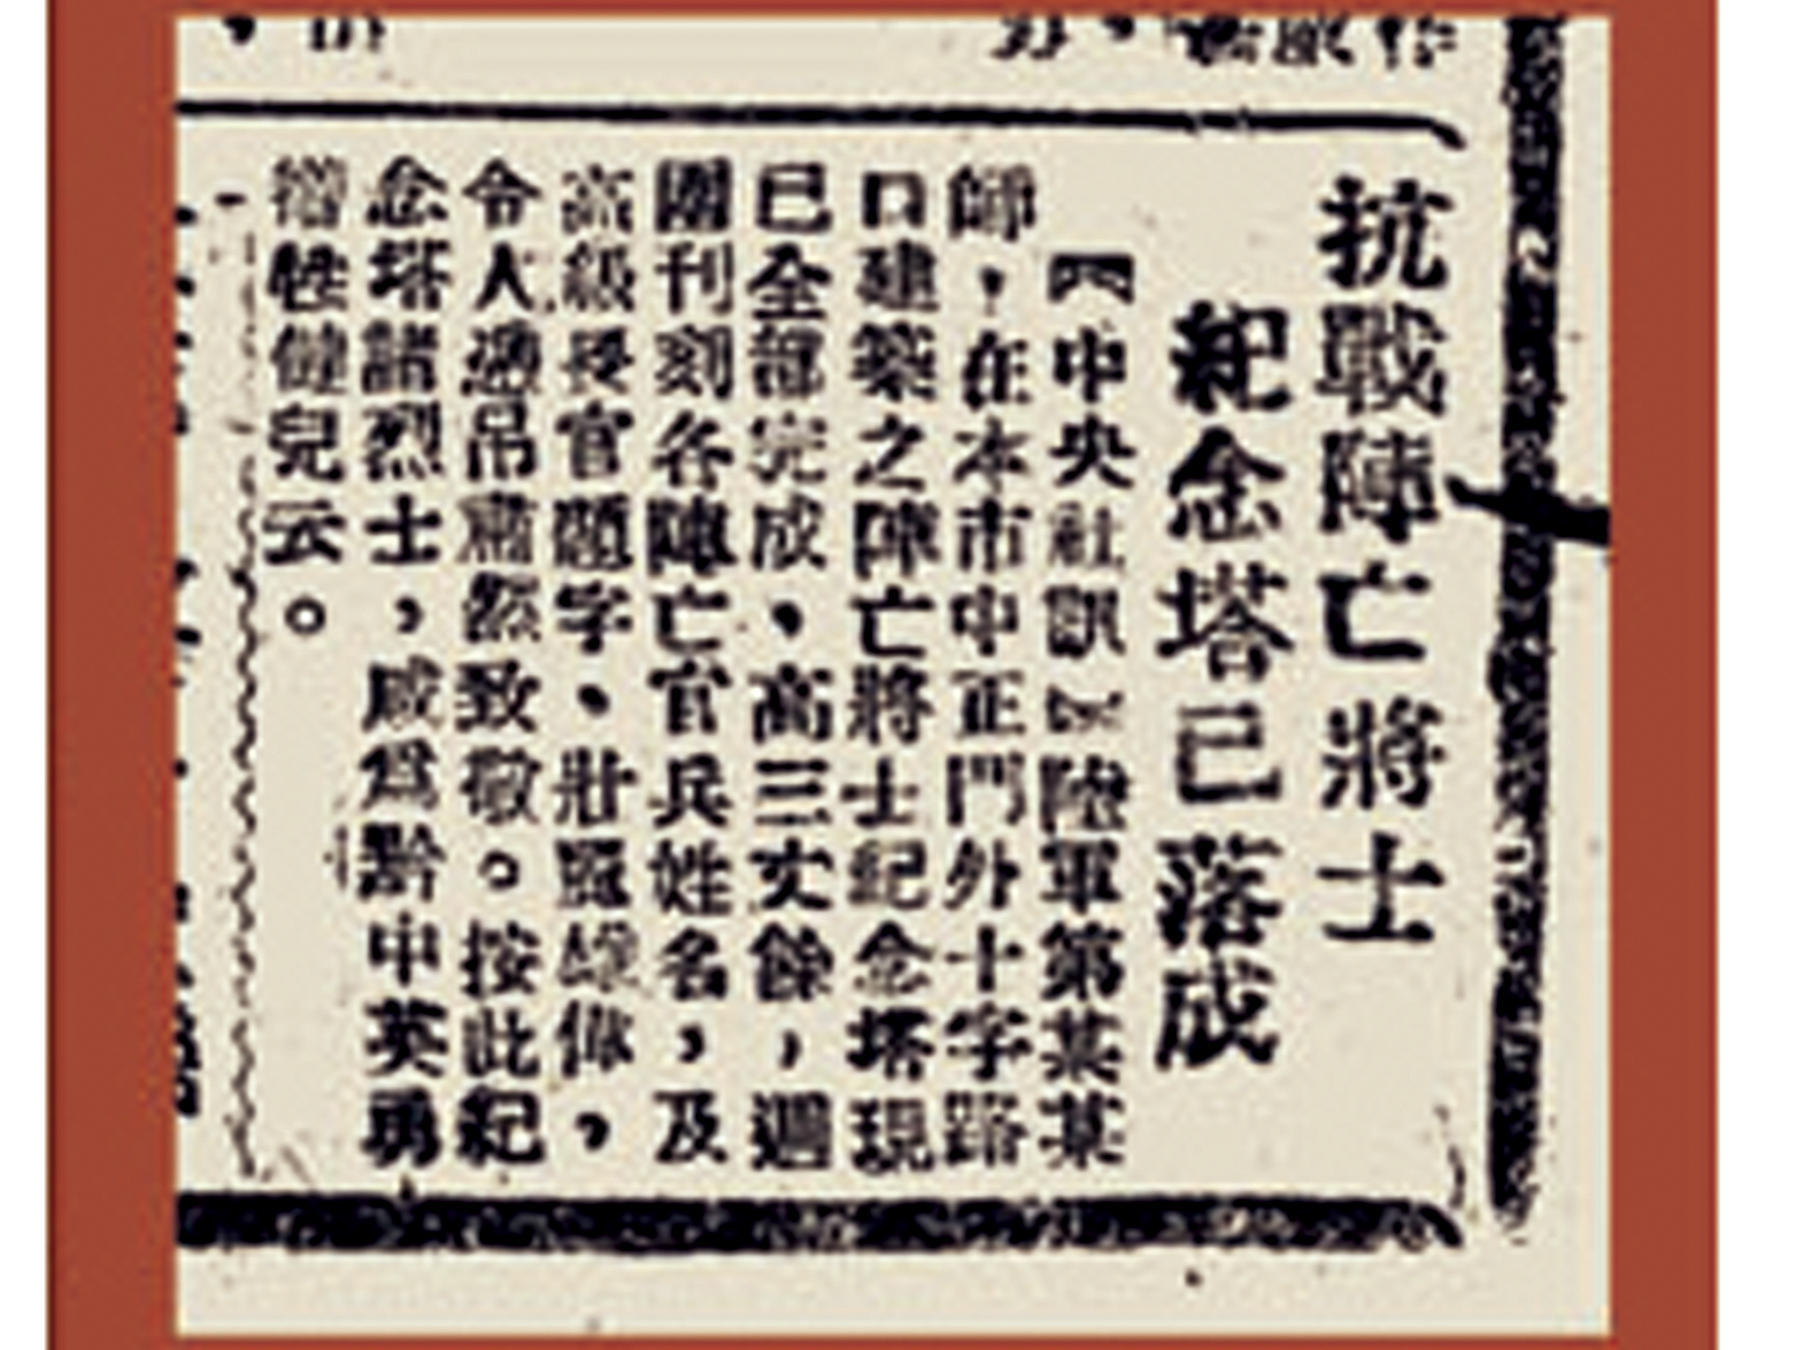 抗戰陣亡將士
紀念塔已落成
【中央社訊】陸軍第某某
師，在本市中正門外十字路
口建築之陣亡將士紀念塔現
已全部完成，高三丈餘，週
圍刊刻各陣亡官兵姓名，及
高級長官題字，壯麗雄偉，
令人憑吊肅然致敬。按此紀
念塔諸烈士，咸為黔中英勇
犧牲健兒云。